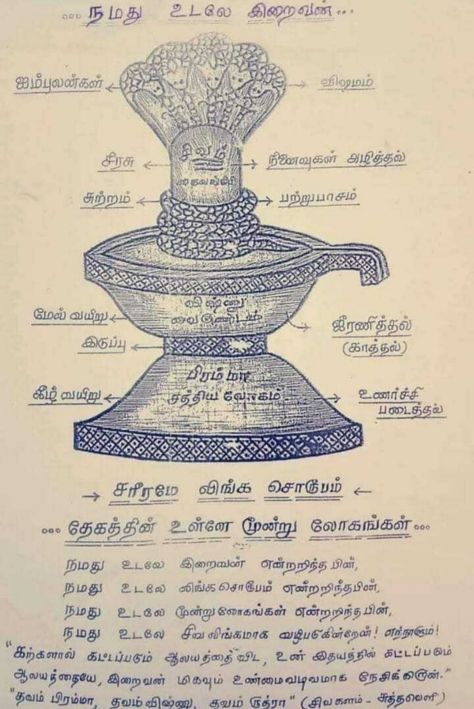 ... நமது உடலே இறைவன் ...
ஐம்புலன்கள்
விஷமம்
சிவம்
சிரசு
நினைவுகள் அழித்தல்
சுற்றம்
பற்றுபாசம்
விஷ்ணு
மேல் வயிறு
ஜீரணித்தல்
(காத்தல்)
இடுப்பு
பிரம்மா
சத்திய லோகம்
கீழ் வயிறு
உணர்ச்சி
படைத்தல்
→ சரீரமே லிங்க சொரூபம் ←
... தேகத்தின் உள்ளே மூன்று லோகங்கள் ...
நமது உடலே இறைவன் என்றறிந்த பின்,
நமது உடலே லிங்கசொரூபம் என்றறிந்தபின்,
நமது உடலே மூன்றுலோகங்கள் என்றறிந்தபின்,
நமது உடலே சிவலிங்கமாக வழிபடுகின்றேன்! எந்நாளும்!
"கற்களால் கட்டப்படும் ஆலயத்தை விட, உன் இதயத்தில் கட்டப்படும்
ஆலயத்தையே, இறைவன் மிகவும் உண்மைவடிவமாக நேசிக்கிறான்."
"தவம் பிரம்மா, தவம் விஷ்ணு, தவம் ருத்ரா" (சிவகளம் - சுத்தவெளி)